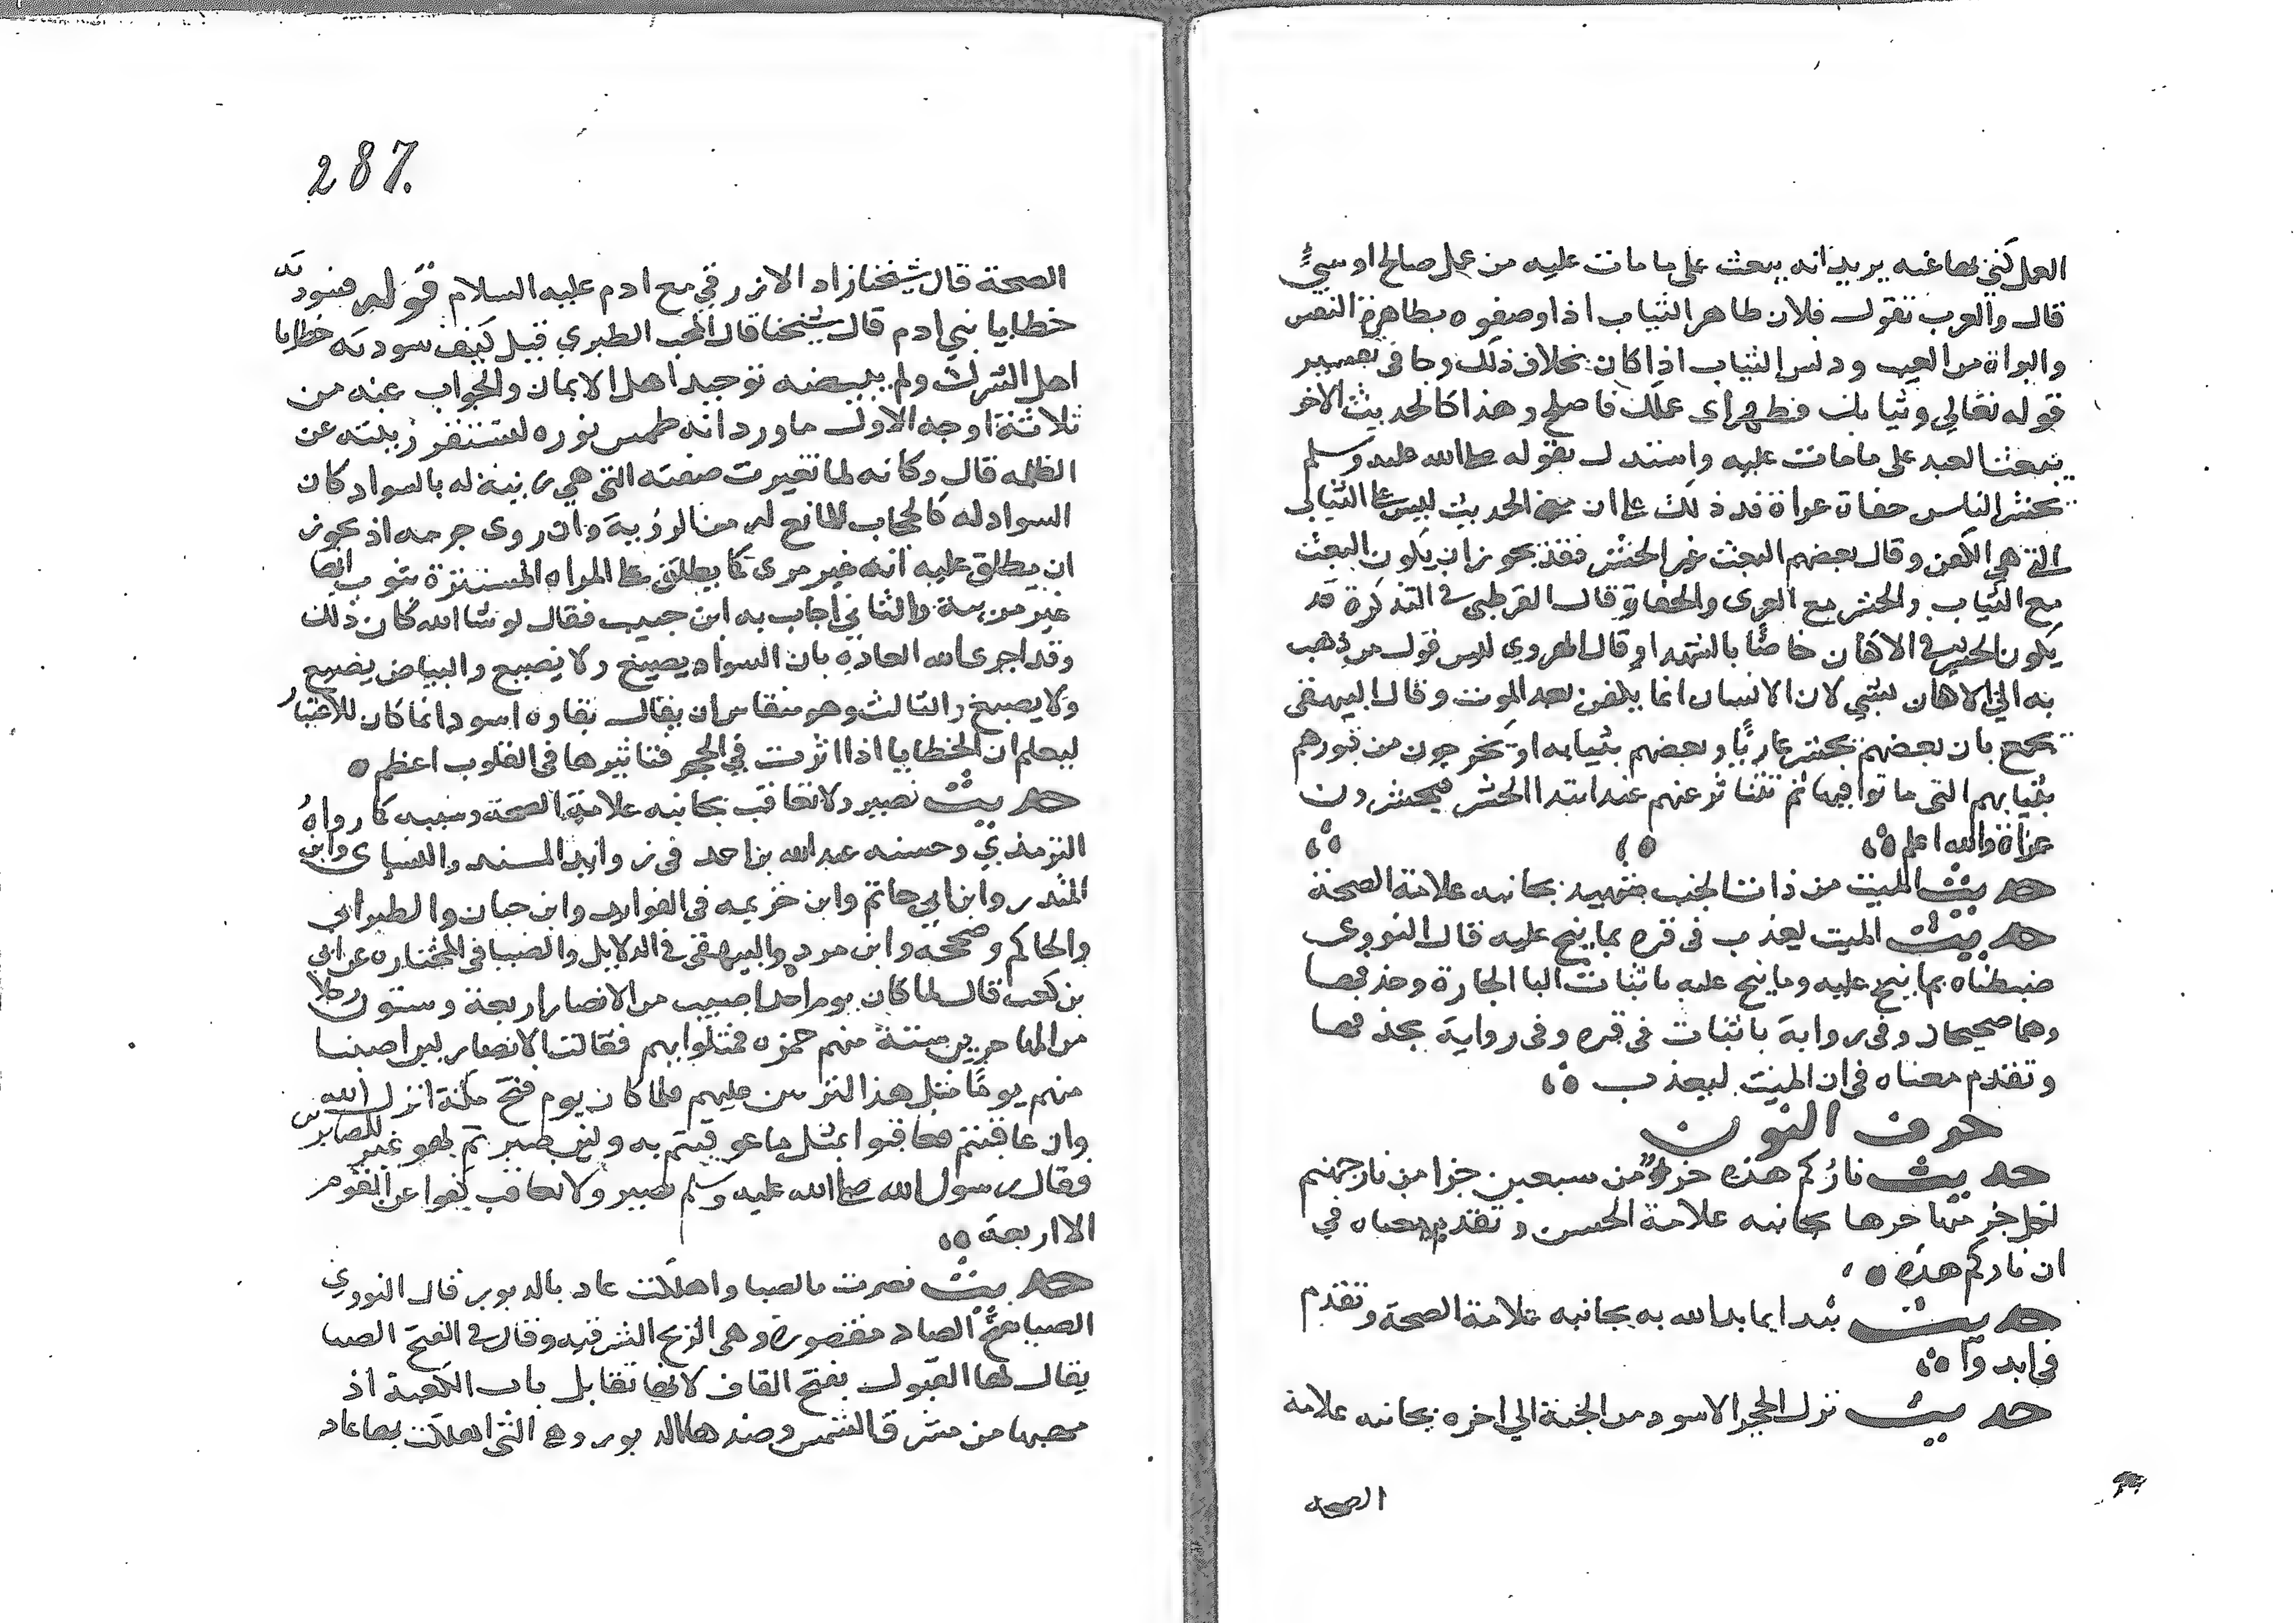 العمل كنى بها عنه يريد انه يبعث على ما مات عليه من عمل صالح او سيئ
قال والعرب تقول فلان طاهر الثياب اذا وصفوه بطاهرة النفس
والبراة من العيب ودنس الثياب اذا كان بخلاف ذلك وجا في تفسير
قوله تعالي وثيابك فطهر اى عملك فاصلح وهذا كالحديث الاخر
يبعث العبد على ما مات عليه واستدل بقوله صلى الله عليه وسلم
يحشر الناس حفاة عراة فدذلك على ان الحديث ليس على الثياب
التي هي الكفن وقال بعضهم البعث غير الحشر فقد يجوز ان يكون البعث
مع الثياب والحشر مع العرى والحفاة قال القرطبي في التذكرة قد
يكون الحشر في الاكفان خاصًا بالشهدا وقال الهروي ليس قول من ذهب
به الي الاكفان بشي لان الانسان انما يكفن بعد الموت وقال البيهقى
يجمع بان بعضهم يحشر عاريًا وبعضهم بثيابه او يخرجون من قبورهم
بثيابهم التى ماتوا فيها ثم تتناثر عنهم عند ابتدا الحشر فيحشرون
عراة والله اعلم
حديث الميت من ذات الجنب شهيد بجانبه علامة الصحة
حديث الميت يعذب في قبره بما ينح عليه قال النووى
ضبطناه بما ينح عليه وما ينح عليه باثبات البا الجارة وحذفها
وهما صحيحان وفى رواية باثبات في قبره وفى رواية بحذفها
وتقدم معناه في ان الميت ليعذب
حرف النون
حديث ناركم هذه جزؤ من سبعين جزا من نار جهنم
لكل جز منها حرها بجانبه علامة الحسن وتقدم معناه في
ان ناركم هذه
حديث نبدا بما بدا الله به بجانبه علامة الصحة وتقدم
في ابدوا
حديث نزل الحجر الاسود من الجنة الي اخره بجانبه علامة
الصحة
287
الصحة قال شيخنا زاد الازرقي مع ادم عليه السلام قوله فسودته
خطايا بني ادم قال شيخنا قال المحب الطبري قيل كيف سودته خطايا
اهل الشرك ولم يبيضه توحيد اهل الايمان والجواب عنه من
ثلاثة اوجه الاول ما ورد انه طمس نوره لتستتر زينته عن
الظلمه قال وكانه لما تغيرت صفته التى هي زينة له بالسواد كان
السواد له كالحجاب المانع له من الرؤية وان روى جرمه اذ يجوز
ان يطلق عليه انه غير مرى كما يطلق على المراه المستترة بثوب انها
غير مريية والثاني اجاب به ابن حبيب فقال لو شا الله كان ذلك
وقد اجرى الله العادة بان السواد يصبغ ولا ينصبغ والبياض ينصبغ
ولا يصبغ والثالث وهو منقاس ان يقال بقاوه اسود انما كان للاعتبار
ليعلم ان الخطايا اذا اثرت في الحجر فتاثيرها في القلوب اعظم
حديث نصبر ولا نعاقب بجانبه علامة الصحة وسببه كما رواه
الترمذي وحسنه عبد الله بن احمد في زوايد المسند والنساى وابن
المنذر وابن ابي حاتم وابن خزيمه في الفوايد وابن حبان والطبراني
والحاكم وصححه وابن مردويه والبيهقى في الدلايل والضيا في المختاره عن ابى
بن كعب قال لما كان يوم احد اصيب من الانصار اربعة وستون رجلا
من المهاجرين ستة منهم حمزه فمثلوا بهم فقالت الانصار لين اصبنا
منهم يومًا مثل هذا لنربين عليهم فلما كان يوم فتح مكة انزل الله
وان عاقبتم فعاقبوا بمثل ما عوقبتم به ولين صبرتم لهو خير للصابرين
فقال رسول الله صلى الله عليه وسلم نصبر ولا نعاقب كفوا عن القوم
الا اربعة
حديث نصرت بالصبا واهلكت عاد بالدبور قال النووي
الصبا بفتح الصاد مقصورة وهى الريح الشرقيه وقال في الفتح الصبا
يقال لها القبول بفتح القاف لانها تقابل باب الكعبة اذ
مهبها من مشرق الشمس وضدها الدبور وهي التى اهلكت بها عاد